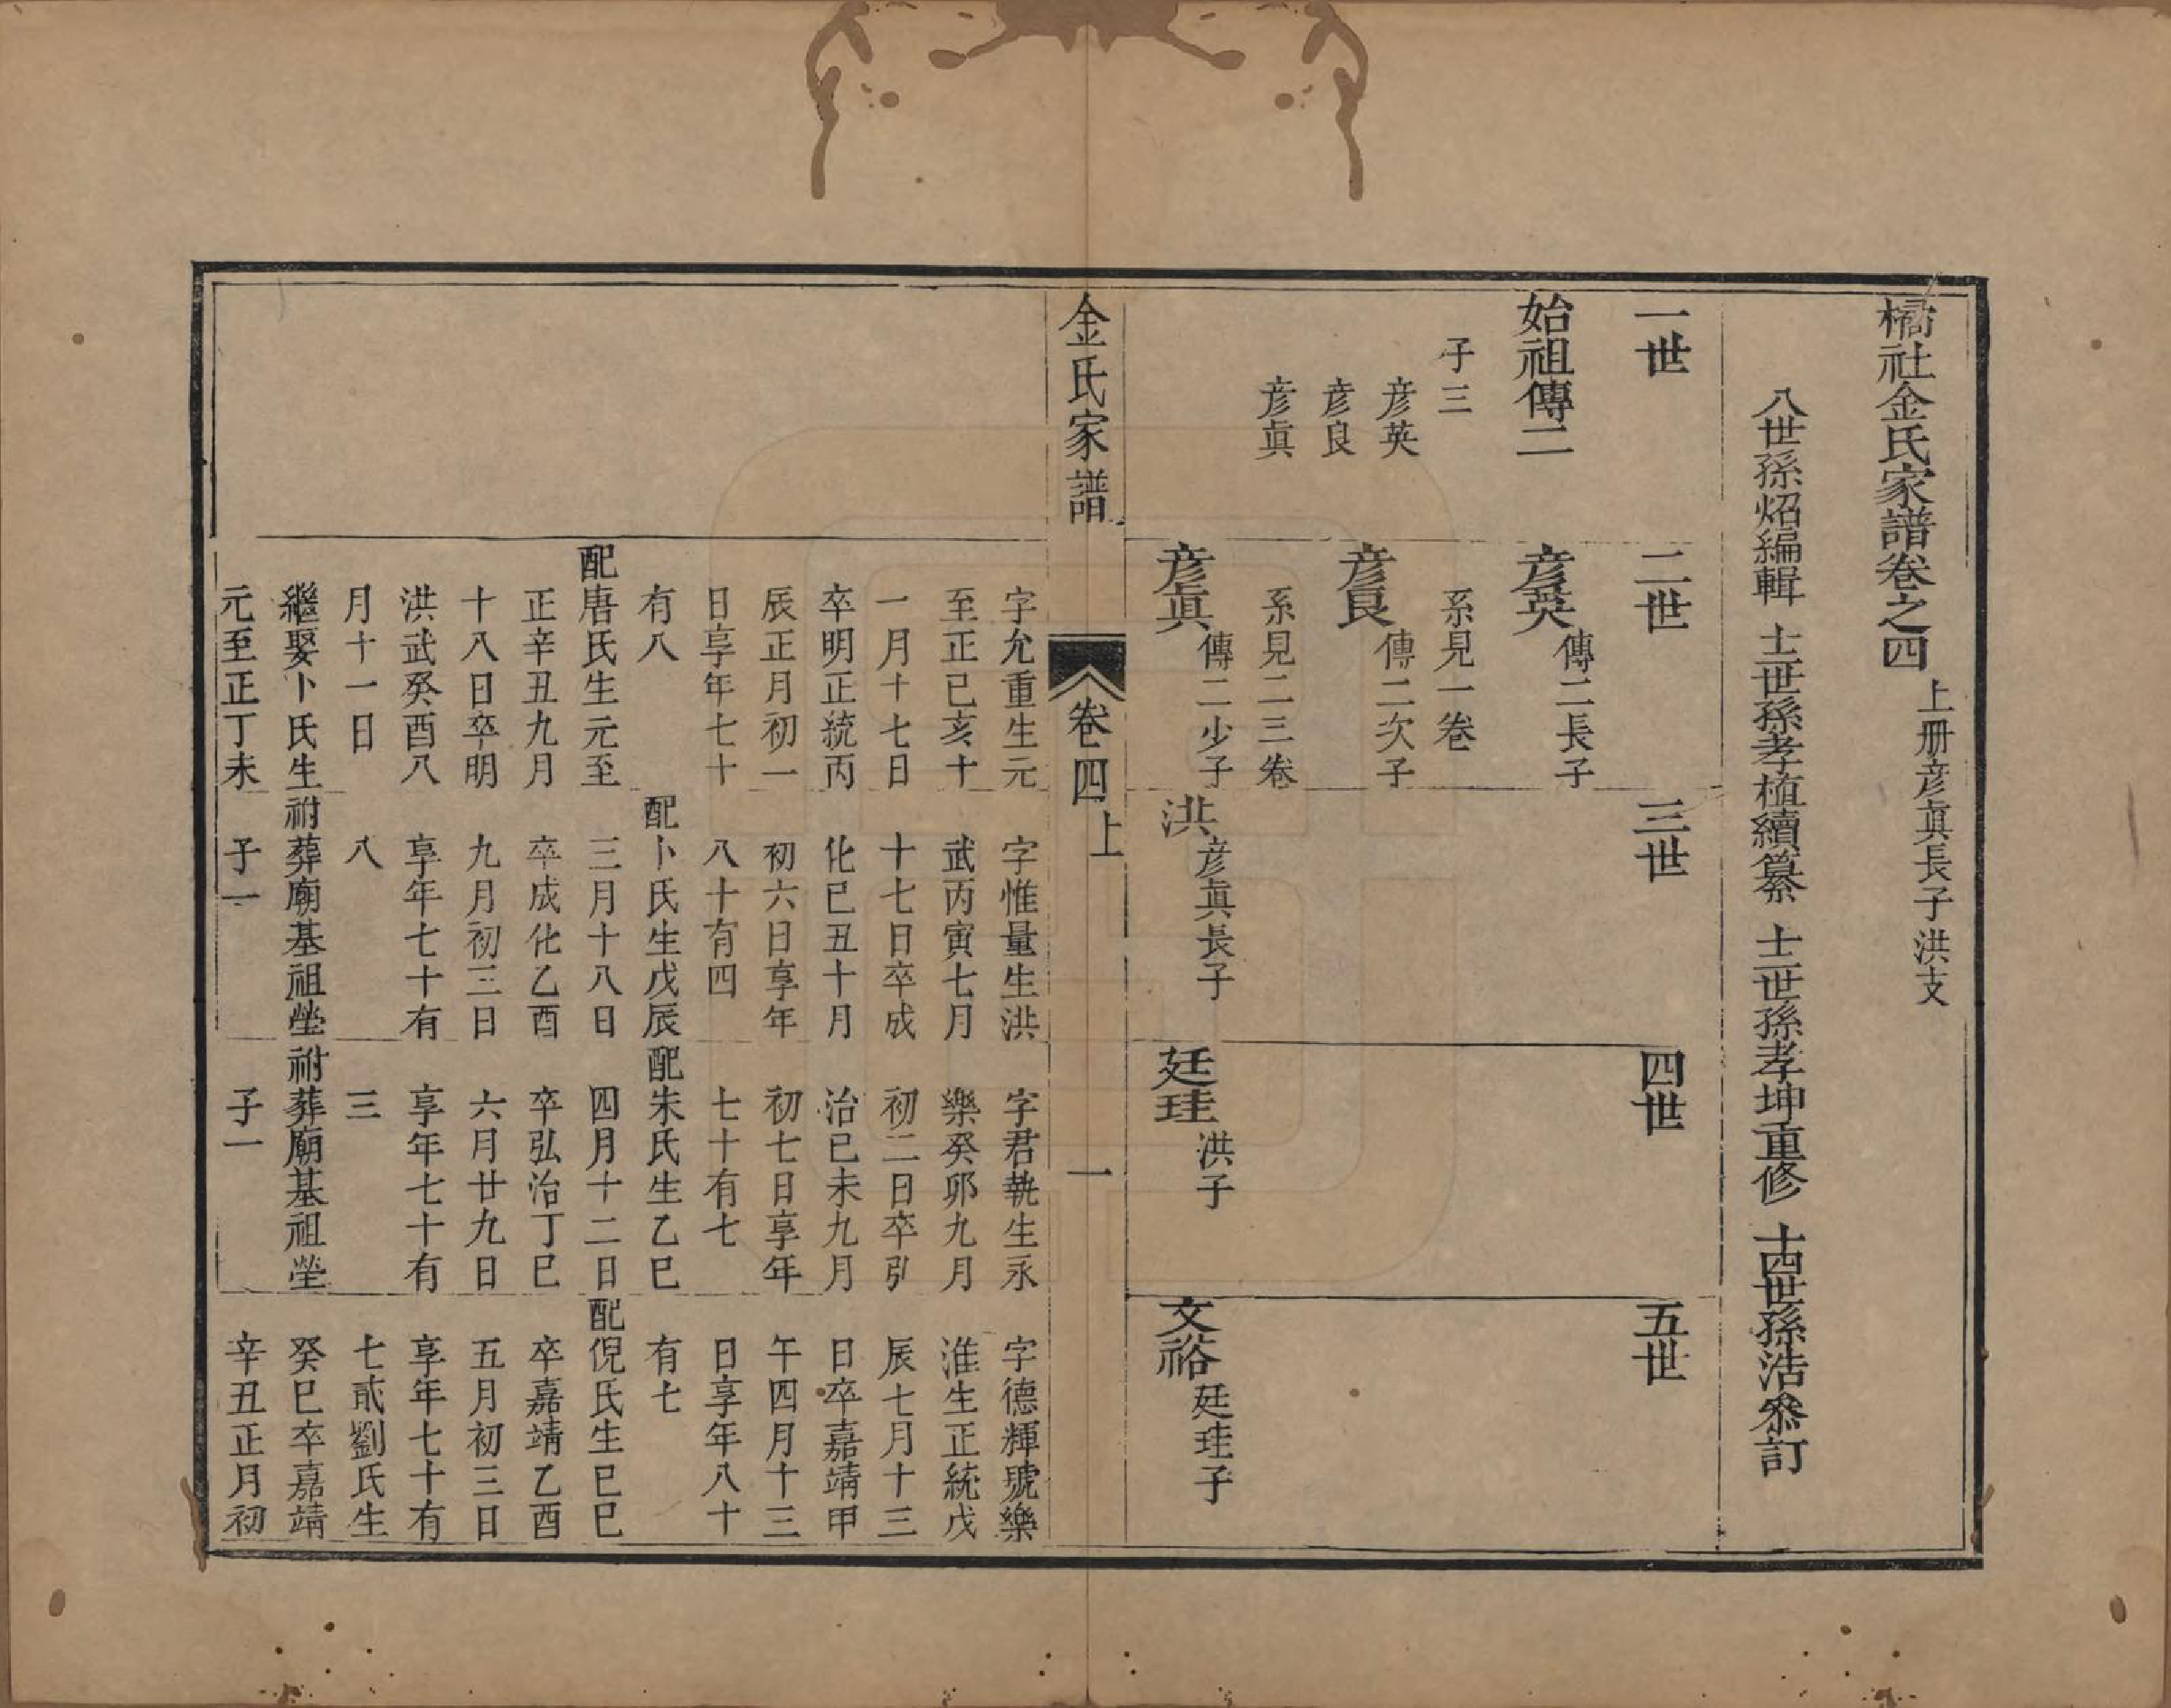 橘社金氏家譜卷之四 上册彦眞長子洪支
八世孫炤編輯 十一世孫孝植續纂 十一世孫孝坤重修 十四世孫浩叅訂
一世
二世
三世
四世
五世
始祖傳二
子三
彦英
彦良
彦眞
彦英 傳二長子
系見一卷
彦良 傳二次子
系見二三卷
彦眞 傳二少子
洪 彦眞長子
廷珪 洪子
文裕 廷珪子
金氏家譜 卷四上 一
字允重生元
至正己亥十
一月十七日
卒明正統丙
辰正月初一
日享年七十
有八
配唐氏生元至
正辛丑九月
十八日卒明
洪武癸酉八
月十一日
繼娶卜氏生
元至正丁未
字惟量生洪
武丙寅七月
十七日卒成
化己丑十月
初六日享年
八十有四
配卜氏生戊辰
三月十八日
卒成化乙酉
九月初三日
享年七十有
八
祔葬廟基祖塋
子一
字君執生永
樂癸卯九月
初二日卒弘
治己未九月
初七日享年
七十有七
配朱氏生乙巳
四月十二日
卒弘治丁巳
六月廿九日
享年七十有
三
祔葬廟基祖塋
子一
字德輝號樂
淮生正統戊
辰七月十三
日卒嘉靖甲
午四月十三
日享年八十
有七
配倪氏生己巳
卒嘉靖乙酉
五月初三日
享年七十有
七貳劉氏生
癸巳卒嘉靖
辛丑正月初